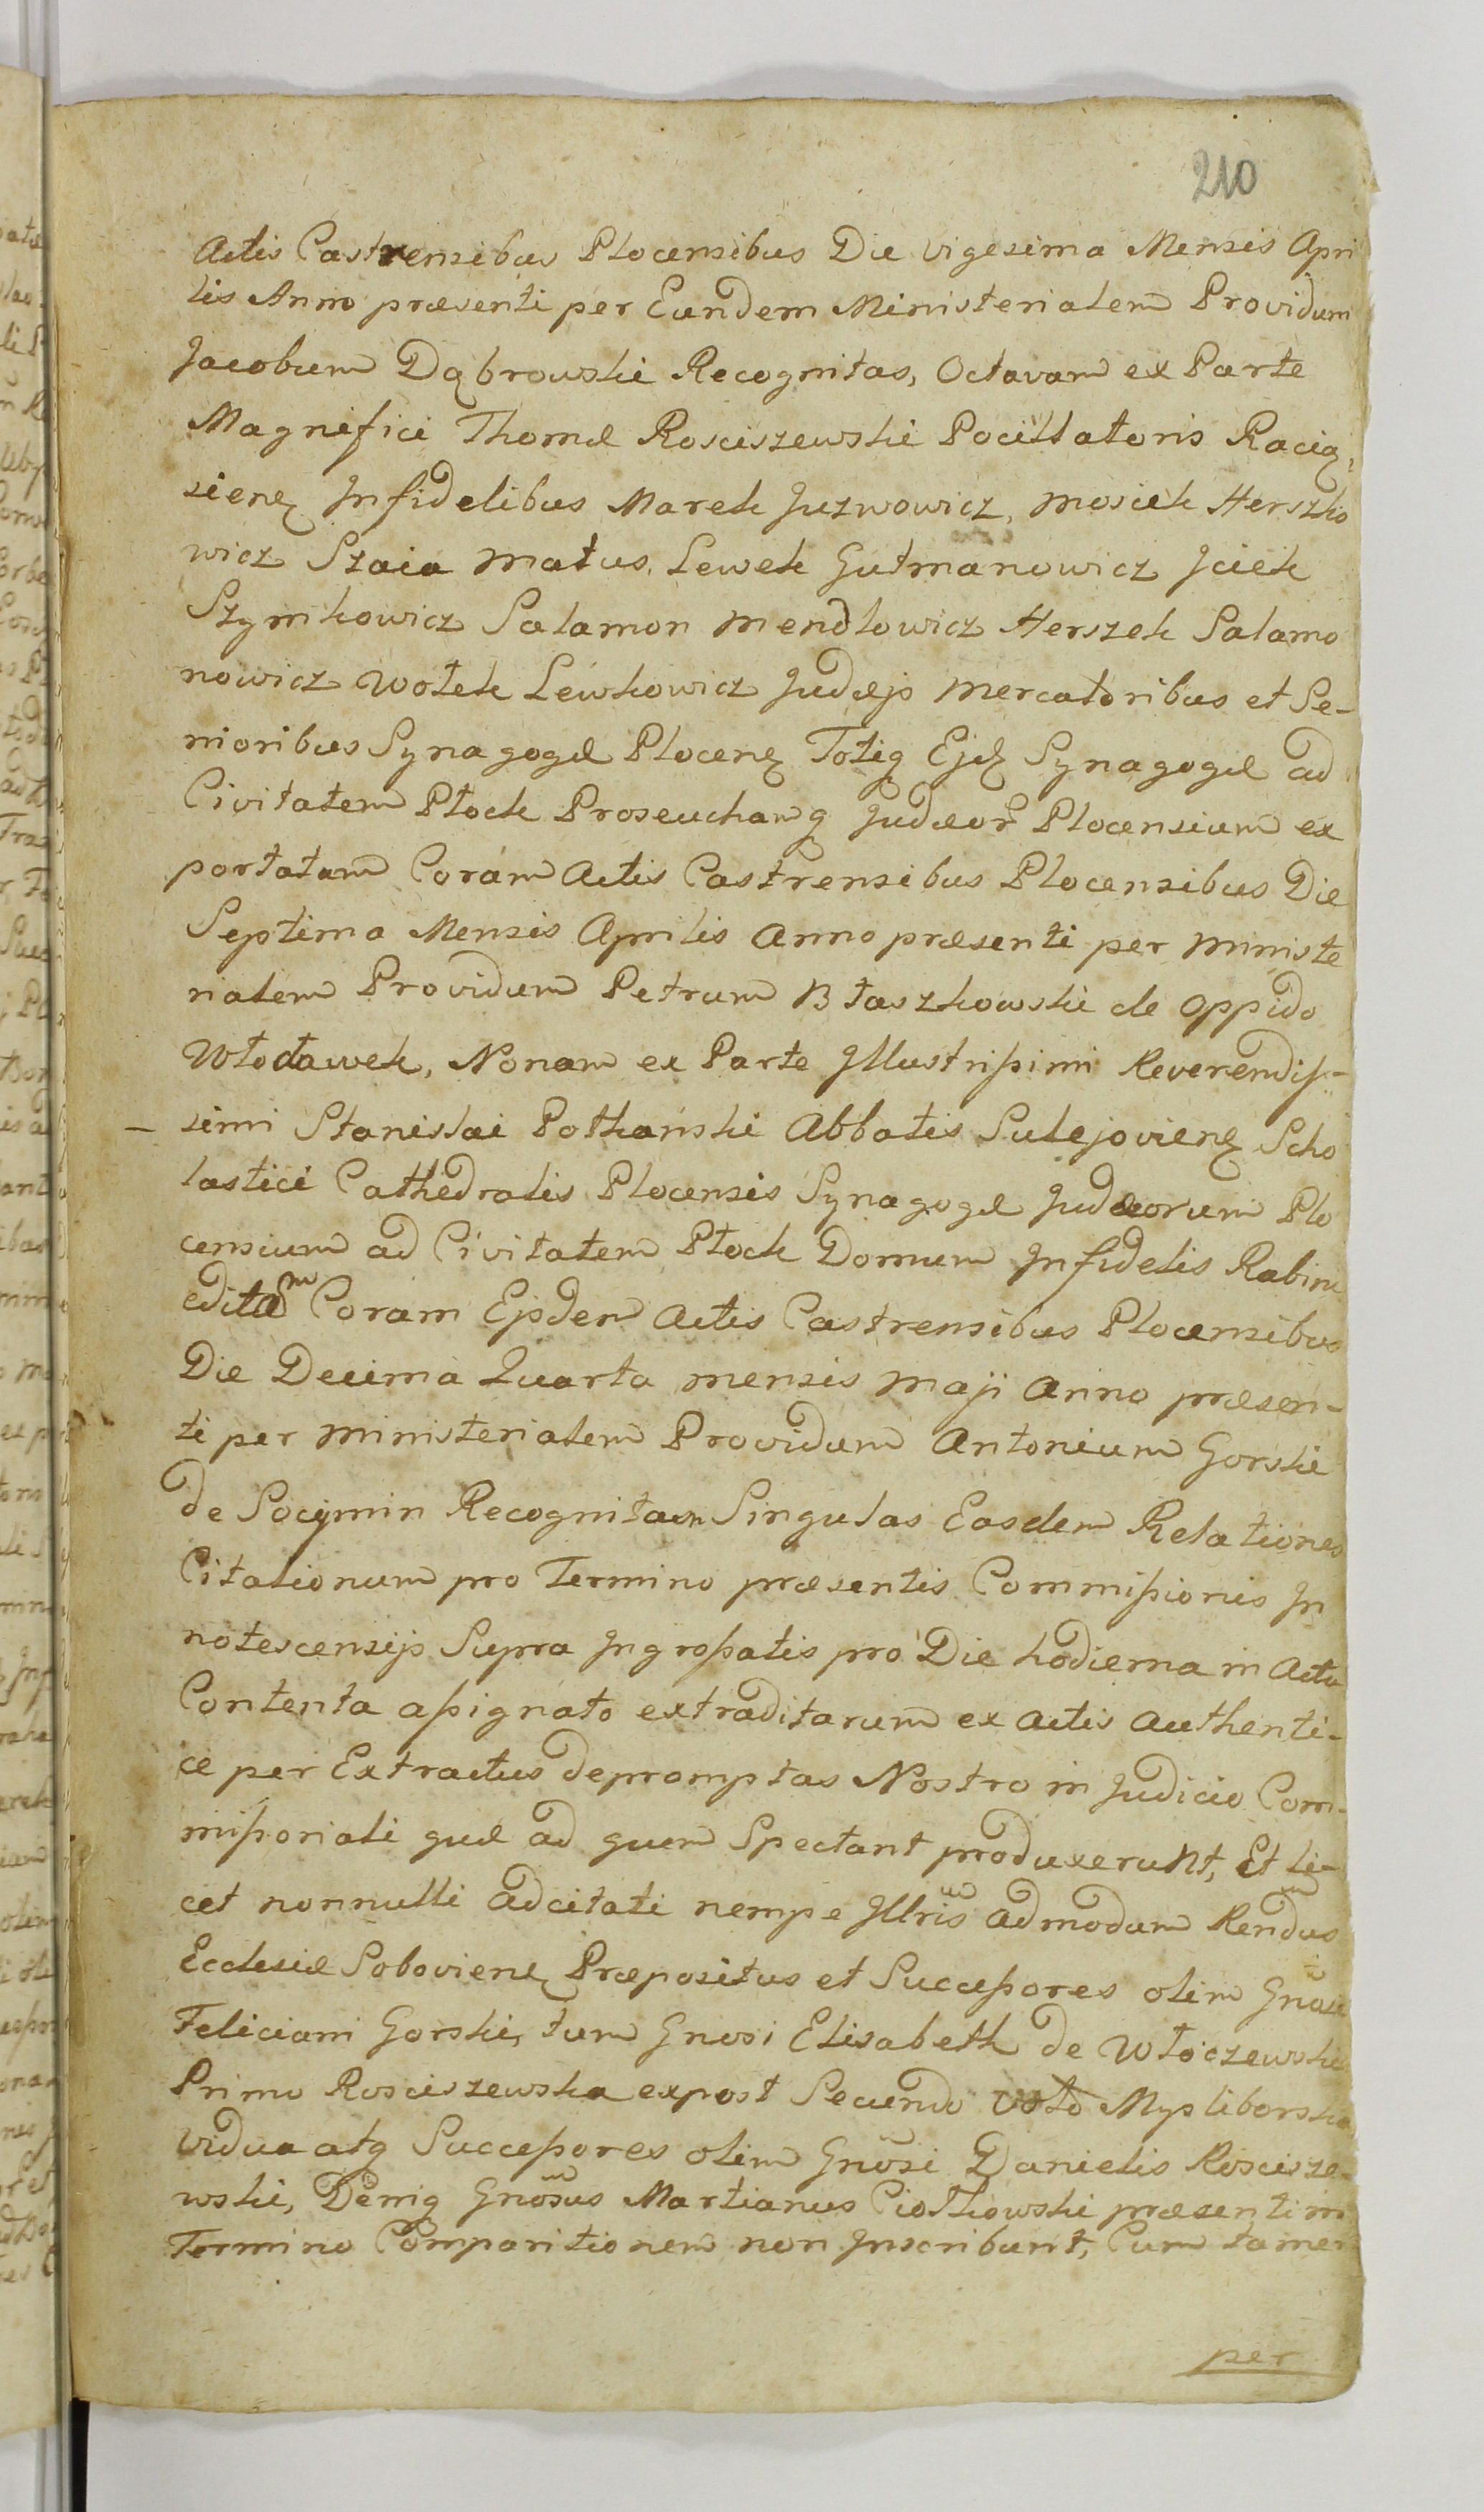 210
Actis Castrensibus Plocensibus Die vigesima Mensis Apri
lis Anno præsenti per Eundem Ministerialem Providum
Jacobum Dąbrowski Recognitas, Octavam ex Parte
Magnifici Thomæ Rosciszewski Pocillatoris Raciąż,
sienę Infidelibus Marek Juzwowicz, Mosiek Herszko
wicz Szaia Matus, Lewek Gutmanowicz Jciek
Szymkowicz Salamon Mendlowicz Herszek Salamo
nowicz Wolek Lewkowicz Judæis Mercatoribus et Se-
nioribus Synagogæ Plocenę Totiq Ejd Synagogæ ad
Civitatem Płock Proseuchamq Judæor Plocensium ex
portatam Coram Actis Castrensibus Plocensibus Die
Septima Mensis Aprilis Anno præsenti per Ministe
rialem Providum Petrum Błaszkowski de oppido
Włodawek, Nonam ex Parte Illustrissimi Reverendis-
simi Stanislai Pothański Abbatis Sulejovienę Scho
lastici Cathedralis Plocensis Synagogæ Judæorum Plo
censium ad Civitatem Płock Domum Infidelis Rabini
editam Coram Eisdem Actis Castrensibus Plocensibus
Die Decima Quarta mensis Maji Anno præsen-
ti per Ministerialem Providum Antonium Gorski
de Socymin Recognitam Singulas Easdem Relationes
Citationum pro Termino præsentis Commissionis In
notescensijs Supra Ingrossatis pro Die hodierna in Actu
Contenta assignato extraditarum ex Actis Authenti-
ce per Extractus depromptas Nostro in Judicio Com-
missoriali quæ ad quem Spectant produxerunt, Et li-
cet nonnulli adcitati nempe Illris admodum Rendus
Ecclesiæ Soboviene Præpositus et Successores olim Gnosi
Feliciani Gorski, tum Gnosi Elisabeth de Włoczewskie
Primo Rosciszewska expost Secundo voto Mysliborska
vidua atq Successores olim Gnosi Danielis Rościsze-
wski, Deniq Gnosus Martianus Ciołkowski præsenti in
Termino Comparitionem non Inscribunt, Cum tamen
per